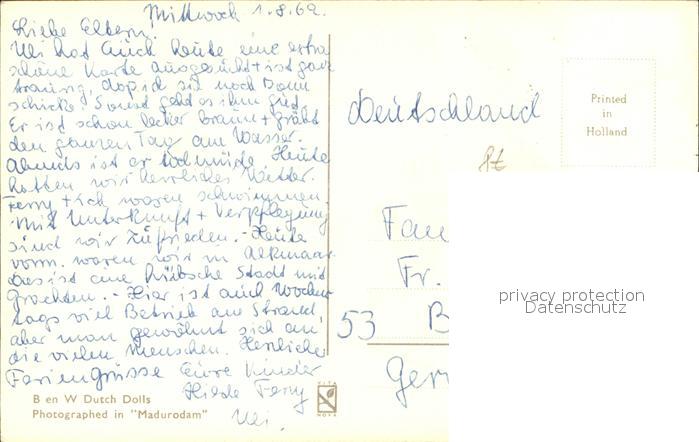 Mittwoch 1.8.62.
Liebe Eltern.
Uli hat auch heute eine extra
schöne Karte ausgesucht + ist ganz
traurig, daß ich sie nach Bonn
schicke. Sonst geht es ihm gut.
Er ist schon lecker braun + gräbt
den ganzen Tag am Wasser.
Abends ist er todmüde. Heute
hatten wir herrliches Wetter.
Ferry + ich waren schwimmen.
Mit Unterkunft + Verpflegung
sind wir zufrieden. - Heute
vorm. waren wir in Alkmaar.
Das ist eine hübsche Stadt mit
Grachten. - Hier ist auch wochen
tags viel Betrieb am Strand,
aber man gewöhnt sich an
die vielen Menschen. Herzliche
Feriengrüsse Eure Kinder
Hilde Ferry
Uli.
B en W Dutch Dolls
Photographed in "Madurodam"
VITA
NOVA
Deutschland
Printed
in
Holland
Fam
Fr.
53 B
Ger
privacy protection
Datenschutz